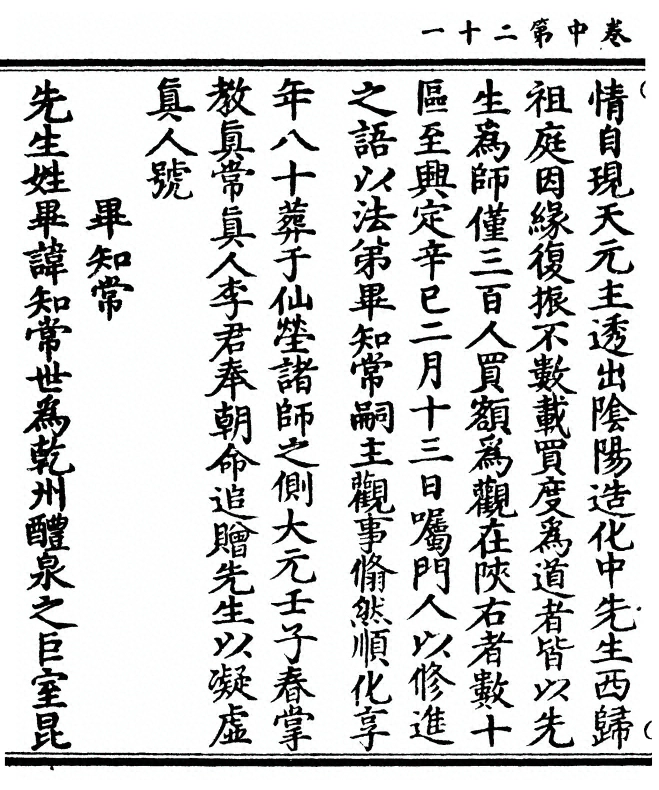 卷中第二十一
情自現天元主透出陰陽造化中先生西歸
祖庭因緣復振不數載買度爲道者皆以先
生爲師僅三百人買額爲觀在陝右者數十
區至興定辛巳二月十三日囑門人以修進
之語以法弟畢知常嗣主觀事翛然順化享
年八十葬于仙塋諸師之側大元壬子春掌
教眞常眞人李君奉朝命追贈先生以凝虛
眞人號
畢知常
先生姓畢諱知常世爲乾州醴泉之巨室昆